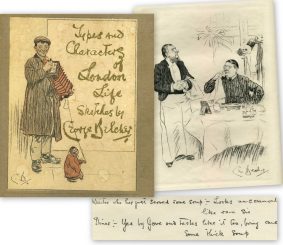 Types and
Characters
of
London
Life
Sketches by
George Belcher
Waiter who has just served some soup :- Looks uncommonly
like rain Sir
Diner :- Yes by Jove and tastes like it too, bring me
some thick soup